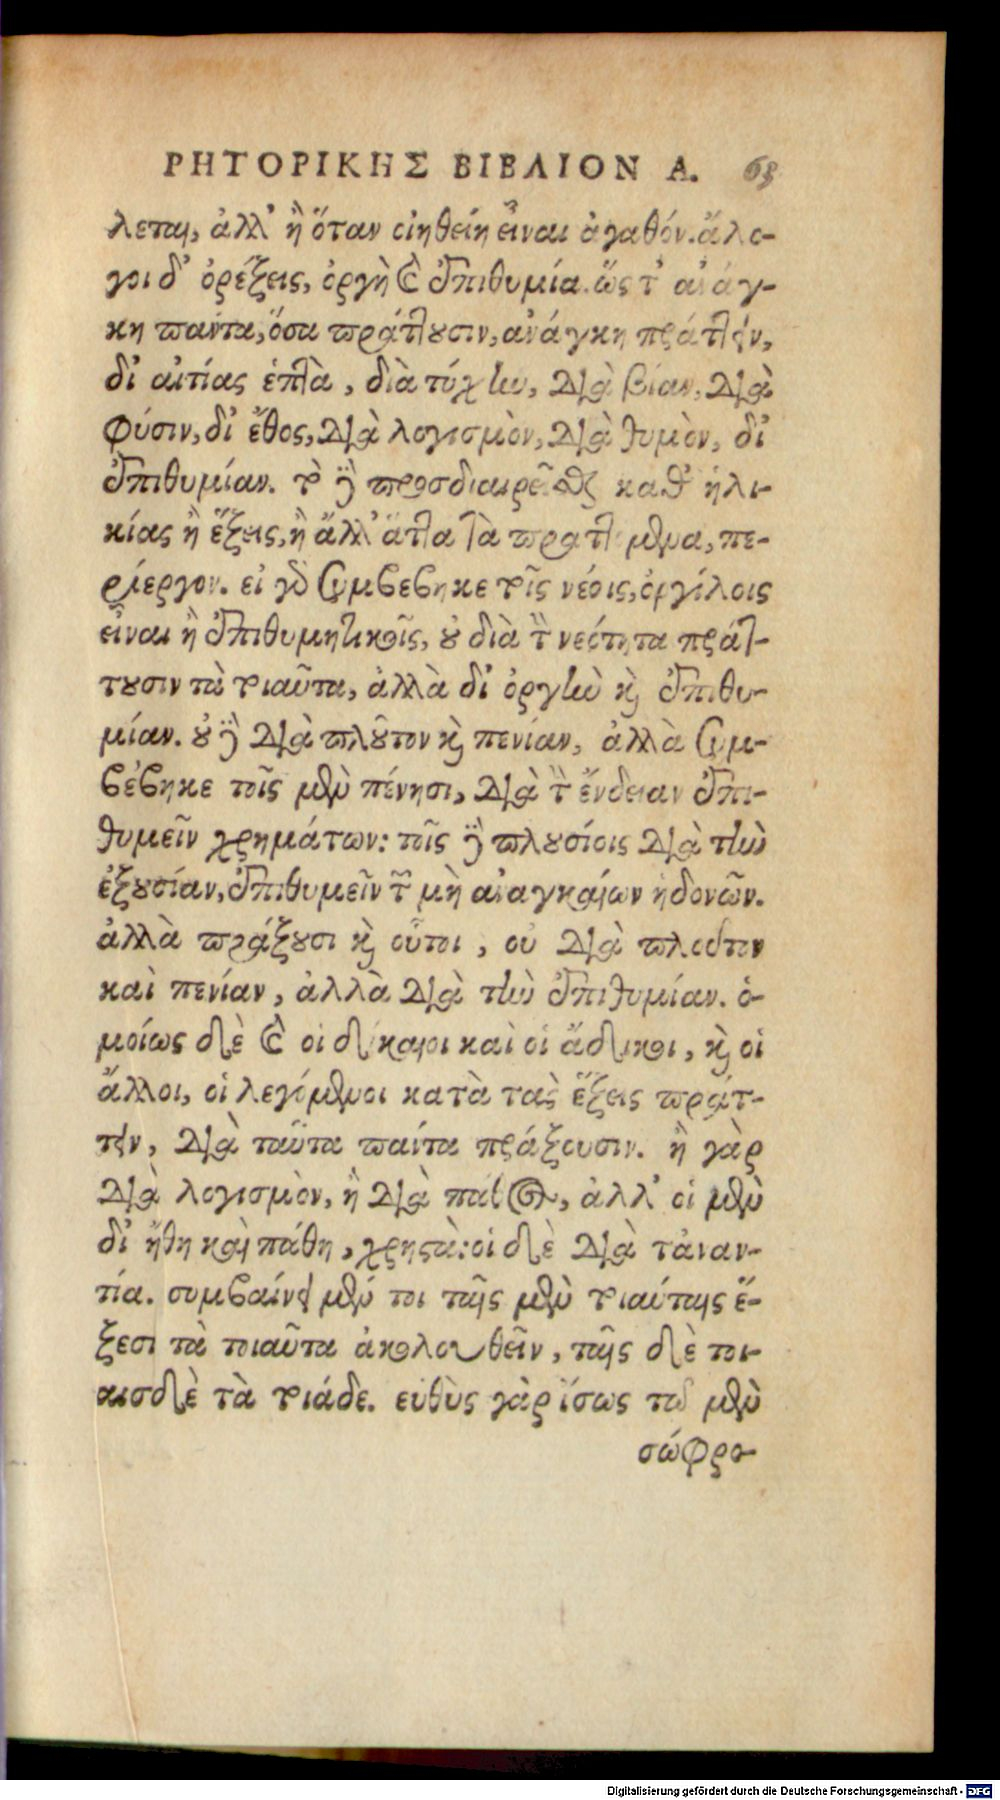 ΡΗΤΟΡΙΚΗΣ ΒΙΒΛΙΟΝ Α. 63
λεται, ἀλλ' ἢ ὅταν οἰηθείη εἶναι ἀγαθόν. ἄλο-
γοι δ' ὀρέξεις, ὀργὴ καὶ ἐπιθυμία. ὥς τ' ἀνάγ-
κη πάντα, ὅσα πράττουσιν, ἀνάγκη πράττειν,
δι' αἰτίας ἑπτὰ, διὰ τύχην, διὰ βίαν, διὰ
φύσιν, δι' ἔθος, διὰ λογισμὸν, διὰ θυμὸν, δι'
ἐπιθυμίαν. τὸ δὲ προσδιαιρεῖσθαι καθ' ἡλι-
κίας ἢ ἕξεις, ἢ ἄλλ' ἄττα τὰ πραττόμενα, πε-
ρίεργον. εἰ γὰρ συμβέβηκε τοῖς νέοις, ὀργίλοις
εἶναι ἢ ἐπιθυμητικοῖς, οὐ διὰ τὴν νεότητα πράτ-
τουσιν τὰ τοιαῦτα, ἀλλὰ δι' ὀργὴν καὶ ἐπιθυ-
μίαν. οὐ δὲ διὰ πλοῦτον καὶ πενίαν, ἀλλὰ συμ-
βέβηκε τοῖς μὲν πένησι, διὰ τὴν ἔνδειαν ἐπι-
θυμεῖν χρημάτων: τοῖς δὲ πλουσίοις διὰ τὴν
ἐξουσίαν, ἐπιθυμεῖν τῶν μὴ ἀναγκαίων ἡδονῶν.
ἀλλὰ πράξουσι καὶ οὗτοι, οὐ διὰ πλοῦτον
καὶ πενίαν, ἀλλὰ διὰ τὴν ἐπιθυμίαν. ὁ-
μοίως δὲ καὶ οἱ δίκαιοι καὶ οἱ ἄδικοι, καὶ οἱ
ἄλλοι, οἱ λεγόμενοι κατὰ τὰς ἕξεις πράτ-
τειν, διὰ ταῦτα πάντα πράξουσιν. ἢ γὰρ
διὰ λογισμὸν, ἢ διὰ πάθος, ἀλλ' οἱ μὲν
δι' ἤθη καὶ πάθη, χρηστὰ: οἱ δὲ διὰ τἀναν-
τία. συμβαίνει μέν τοι ταῖς μὲν τοιαύταις ἕ-
ξεσι τὰ τοιαῦτα ἀκολουθεῖν, ταῖς δὲ τοι-
αισδὲ τὰ τοιάδε. εὐθὺς γὰρ ἴσως τῷ μὲν
σώφρο-
Digitalisierung gefördert durch die Deutsche Forschungsgemeinschaft - DFG